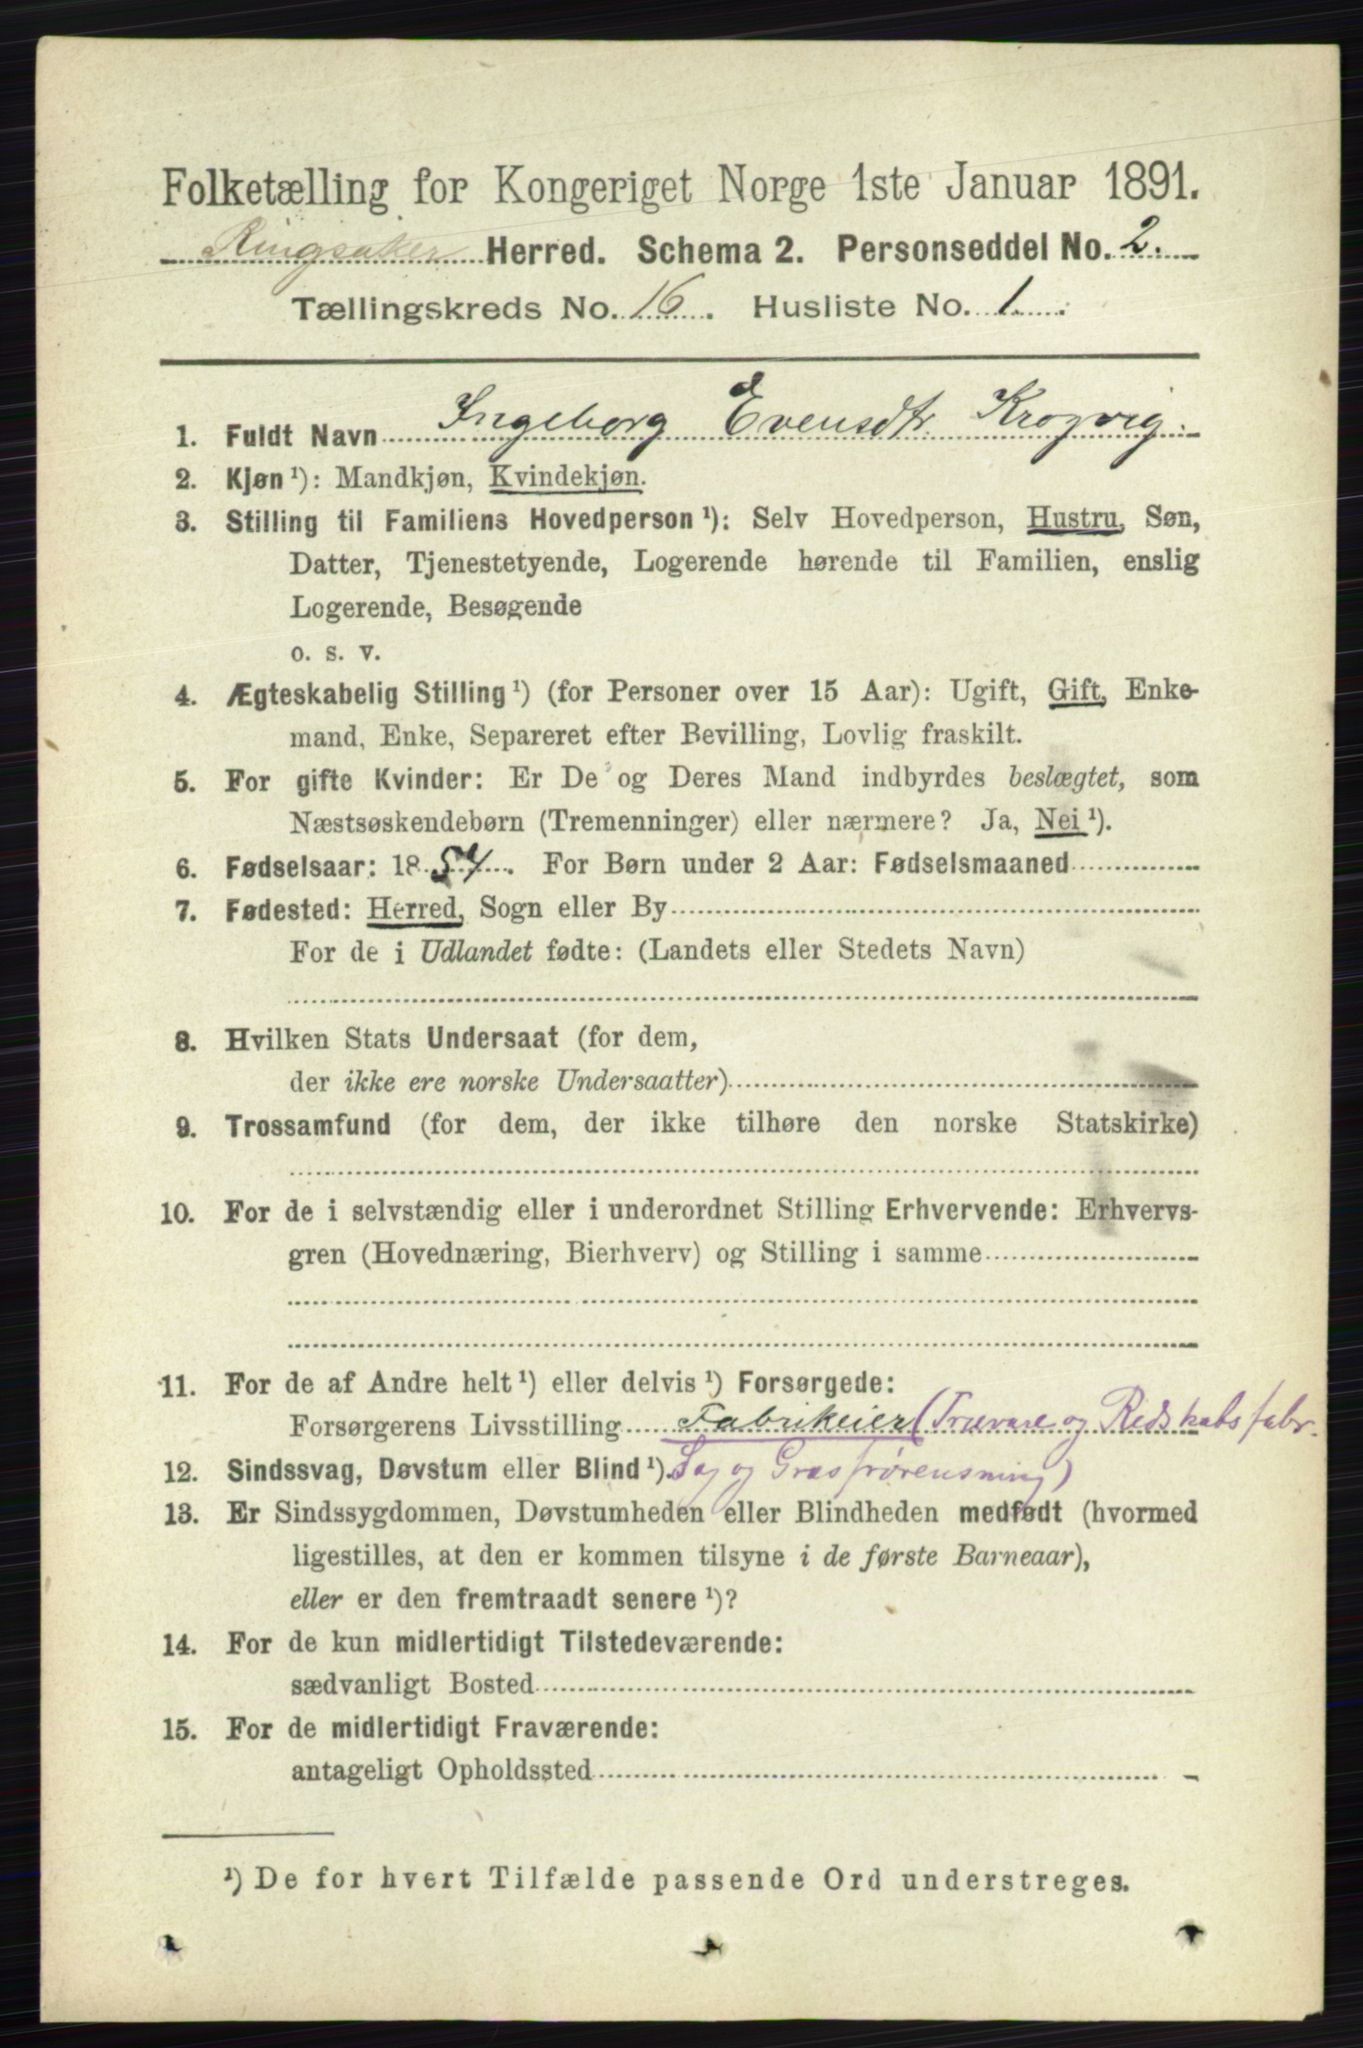 Folketælling for Kongeriget Norge 1ste Januar 1891.
Ringsaker Herred. Schema 2. Personseddel No. 2.
Tællingskreds No. 16. Husliste No. 1.
1. Fuldt Navn Ingeborg Evensdtr. Krogvig.
2. Kjøn ¹): Mandkjøn, Kvindekjøn.
3. Stilling til Familiens Hovedperson ¹): Selv Hovedperson, Hustru, Søn,
Datter, Tjenestetyende, Logerende hørende til Familien, enslig
Logerende, Besøgende
o. s. v.
4. Ægteskabelig Stilling ¹) (for Personer over 15 Aar): Ugift, Gift, Enke-
mand, Enke, Separeret efter Bevilling, Lovlig fraskilt.
5. For gifte Kvinder: Er De og Deres Mand indbyrdes beslægtet, som
Næstsøskendebørn (Tremenninger) eller nærmere? Ja, Nei ¹).
6. Fødselsaar: 1854. For Børn under 2 Aar: Fødselsmaaned
7. Fødested: Herred, Sogn eller By
For de i Udlandet fødte: (Landets eller Stedets Navn)
8. Hvilken Stats Undersaat (for dem,
der ikke ere norske Undersaatter)
9. Trossamfund (for dem, der ikke tilhøre den norske Statskirke)
10. For de i selvstændig eller i underordnet Stilling Erhvervende: Erhvervs-
gren (Hovednæring, Bierhverv) og Stilling i samme
11. For de af Andre helt ¹) eller delvis ¹) Forsørgede:
Forsørgerens Livsstilling Fabrikeier (Trævare og Redskabsfabr.
12. Sindssvag, Døvstum eller Blind ¹). Sag og Græsfrørensning)
13. Er Sindssygdommen, Døvstumheden eller Blindheden medfødt (hvormed
ligestilles, at den er kommen tilsyne i de første Barneaar),
eller er den fremtraadt senere ¹)?
14. For de kun midlertidigt Tilstedeværende:
sædvanligt Bosted
15. For de midlertidigt Fraværende:
antageligt Opholdssted
¹) De for hvert Tilfælde passende Ord understreges.